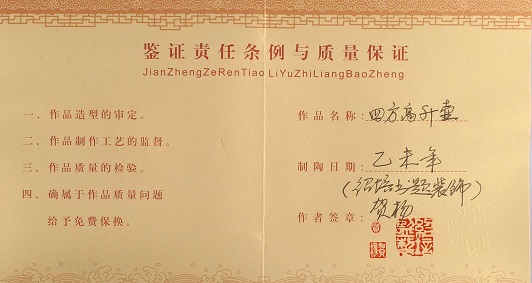 鉴证责任条例与质量保证
JianZhengZeRenTiao LiYuZhiLiangBaoZheng
一、作品造型的审定。
二、作品制作工艺的监督。
三、作品质量的检验。
四、确属于作品质量问题
给予免费保换。
作品名称：四方高升壶
制陶日期：乙未年
（绍培书题装饰）
作者签章：贺杨